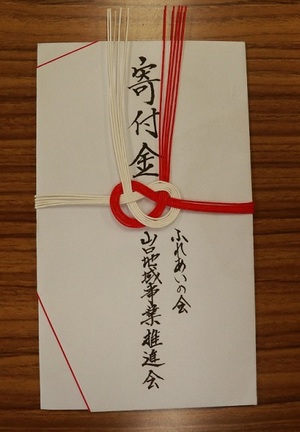 寄付金
ふれあいの会
山口地域事業推進会